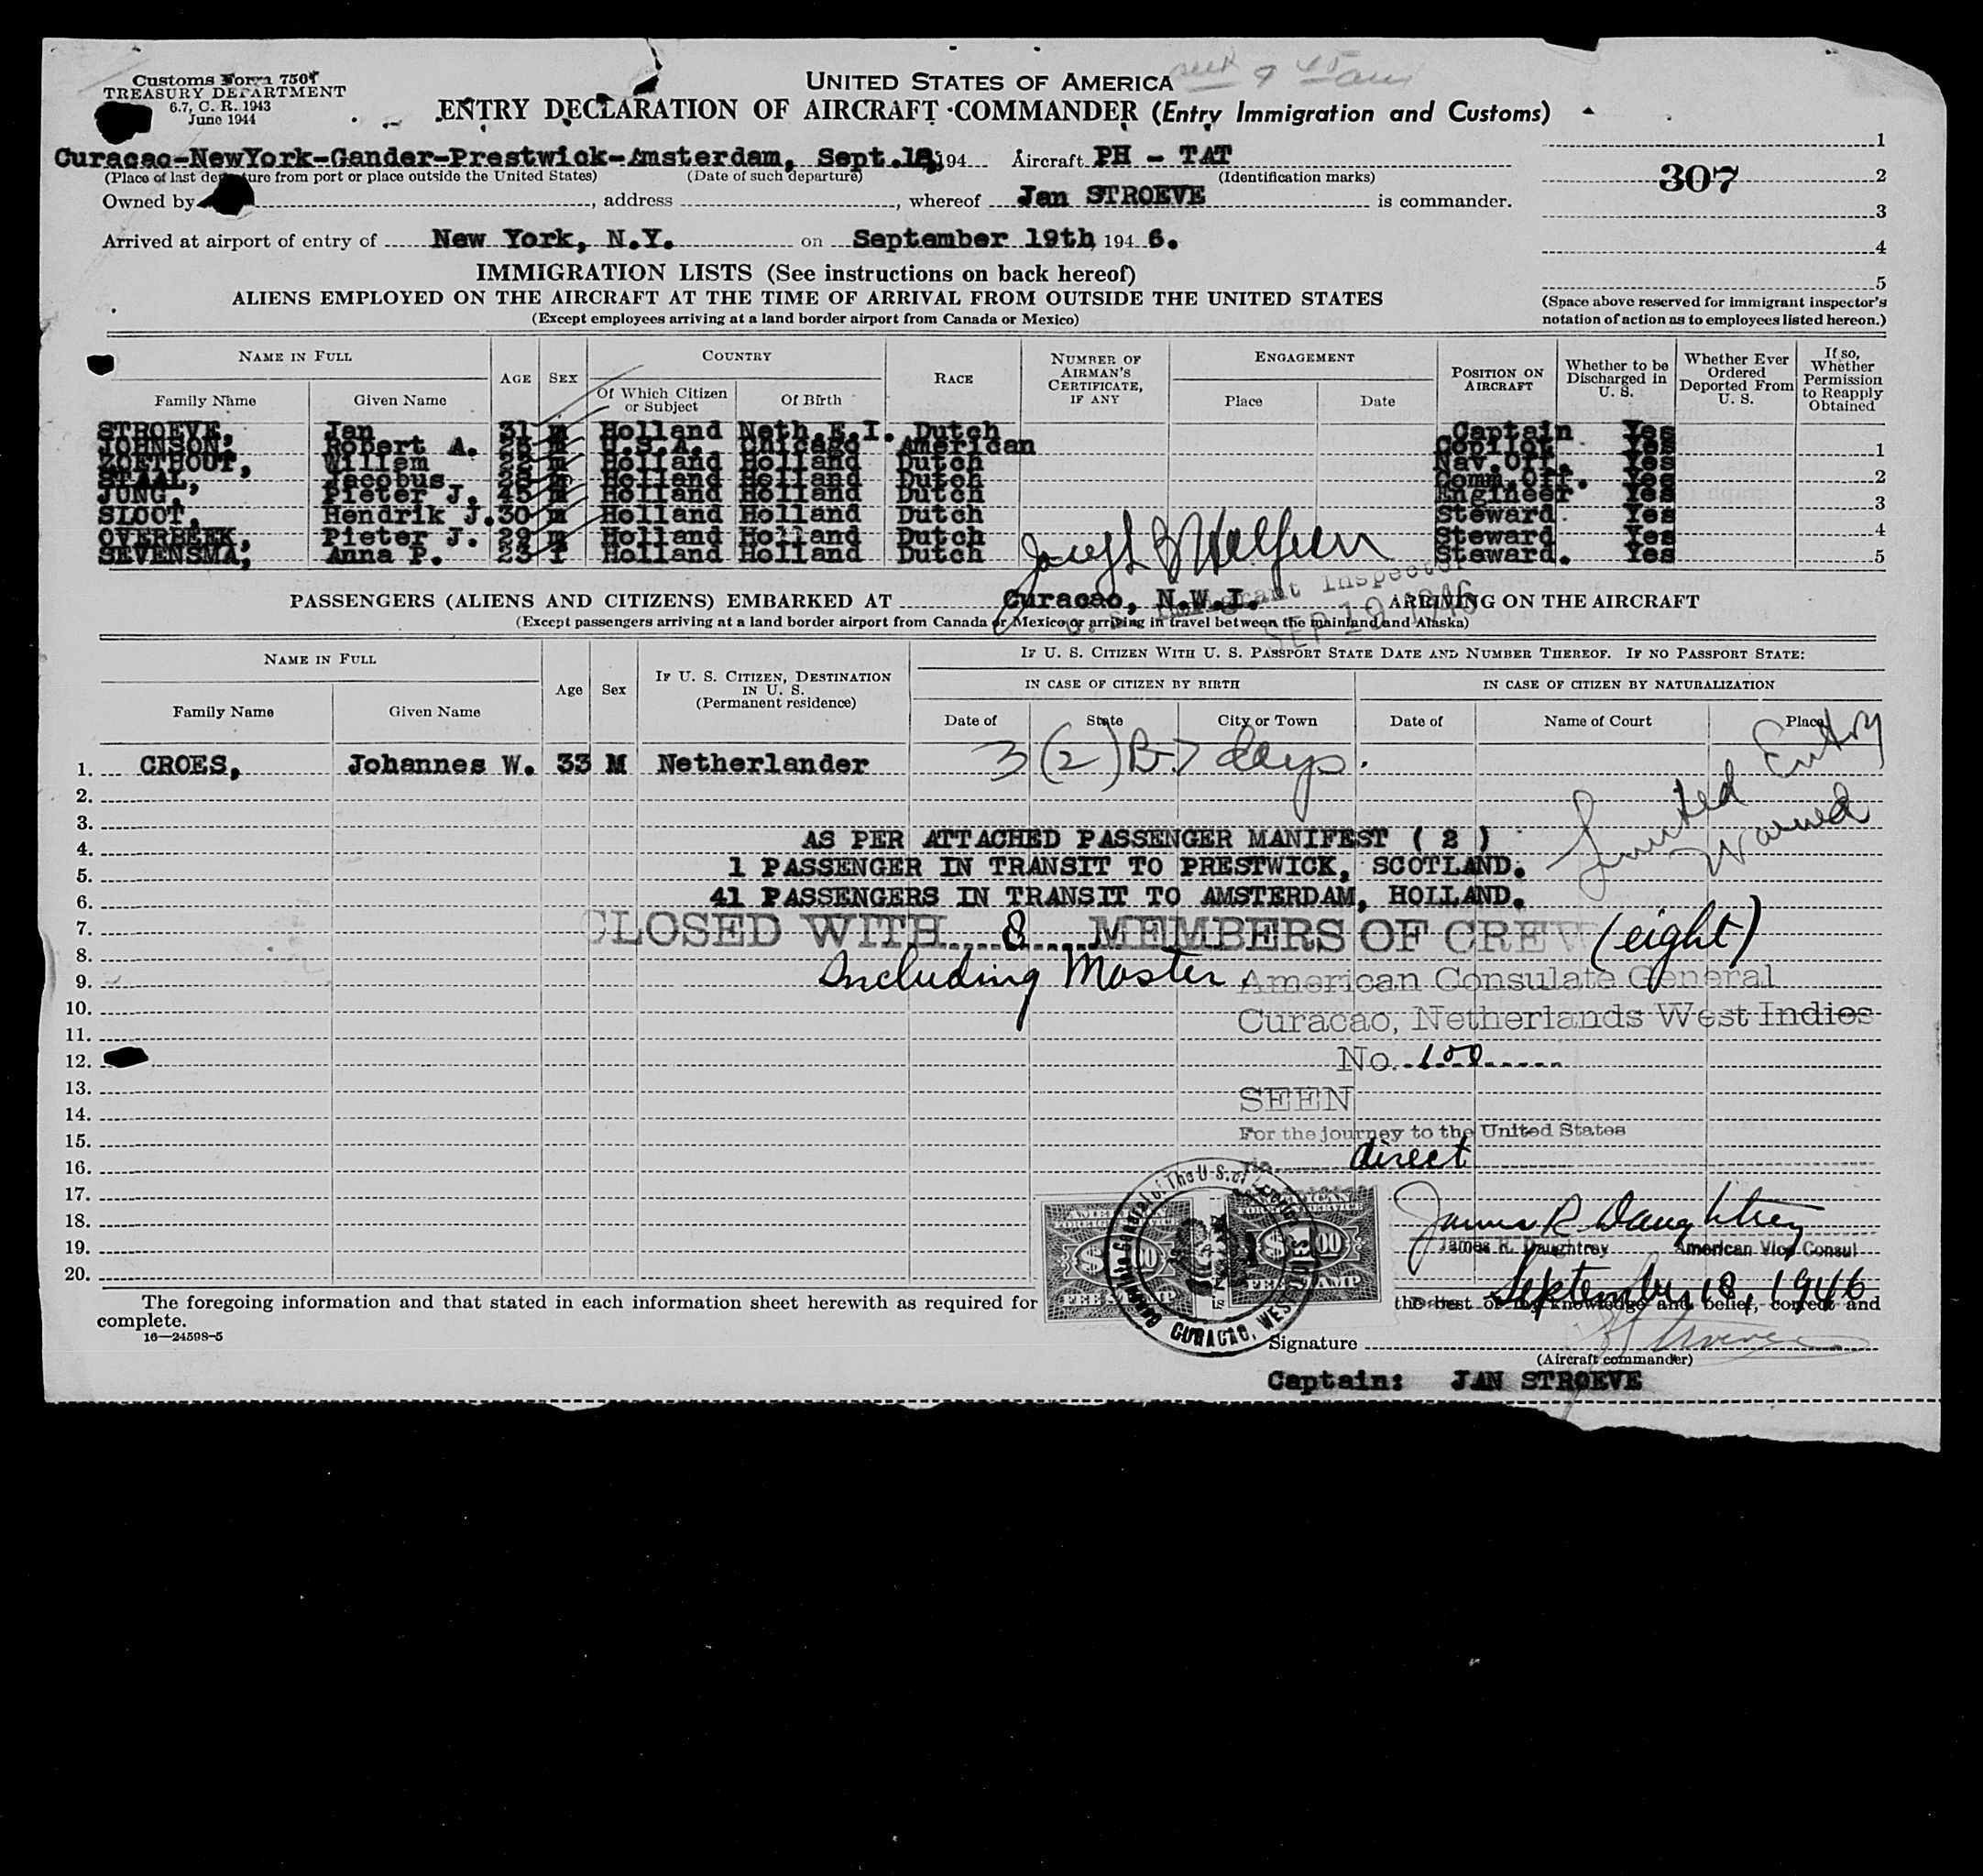 Customs Form 7507
TREASURY DEPARTMENT
6.7, C. R. 1943
June 1944
UNITED STATES OF AMERICA
ENTRY DECLARATION OF AIRCRAFT COMMANDER (Entry Immigration and Customs)
Curacao-NewYork-Gander-Prestwick-Amsterdam, Sept.18, 194 Aircraft PH - TAT
(Place of last departure from port or place outside the United States) (Date of such departure) (Identification marks)
Owned by , address , whereof Jan STROEVE is commander.
Arrived at airport of entry of New York, N.Y. on September 19th 194 6.
1
307 2
3
4
5
(Space above reserved for immigrant inspector's
notation of action as to employees listed hereon.)
IMMIGRATION LISTS (See instructions on back hereof)
ALIENS EMPLOYED ON THE AIRCRAFT AT THE TIME OF ARRIVAL FROM OUTSIDE THE UNITED STATES
(Except employees arriving at a land border airport from Canada or Mexico)
NAME IN FULL AGE SEX COUNTRY RACE NUMBER OF AIRMAN'S CERTIFICATE, IF ANY ENGAGEMENT POSITION ON AIRCRAFT Whether to be Discharged in U. S. Whether Ever Ordered Deported From U. S. If so, Whether Permission to Reapply Obtained
Family Name Given Name Of Which Citizen or Subject Of Birth Place Date
STROEVE, Jan 31 m Holland Neth.E.I. Dutch Captain Yes
JOHNSON, Robert A. m U.S.A. Chicago American Copilot Yes 1
ZOETHOUT, Willem m Holland Holland Dutch Nav.Off. Yes
STAAL, Jacobus m Holland Holland Dutch Comm.Off. Yes 2
JUNG, Pieter J. 45 m Holland Holland Dutch Engineer Yes 3
SLOOT, Hendrik J. 30 m Holland Holland Dutch Steward. Yes
OVERBEEK, Pieter J. 29 m Holland Holland Dutch Steward Yes 4
SEVENSMA, Anna P. 23 f Holland Holland Dutch Steward. Yes 5
Immigrant Inspector
SEP 19 1946
PASSENGERS (ALIENS AND CITIZENS) EMBARKED AT Curacao, N.W.I. ARRIVING ON THE AIRCRAFT
(Except passengers arriving at a land border airport from Canada or Mexico or arriving in travel between the mainland and Alaska)
NAME IN FULL Age Sex IF U. S. CITIZEN, DESTINATION IN U. S. (Permanent residence) IF U. S. CITIZEN WITH U. S. PASSPORT STATE DATE AND NUMBER THEREOF. IF NO PASSPORT STATE:
IN CASE OF CITIZEN BY BIRTH IN CASE OF CITIZEN BY NATURALIZATION
Family Name Given Name Date of State City or Town Date of Name of Court Place
1. CROES, Johannes W. 33 M Netherlander 3 (2) B-7 days.
Limited Entry
Warned
2.
3.
4. AS PER ATTACHED PASSENGER MANIFEST ( 2 )
5. 1 PASSENGER IN TRANSIT TO PRESTWICK, SCOTLAND.
6. 41 PASSENGERS IN TRANSIT TO AMSTERDAM, HOLLAND.
7. CLOSED WITH 8 MEMBERS OF CREW (eight)
8.
9. Including Master American Consulate General
10. Curacao, Netherlands West Indies
11.
12. No. 100
13.
14. SEEN
15. For the journey to the United States
16. direct
17.
18. James R Daughtrey
19. James R. Daughtrey American Vice Consul
20. September 18, 1946
AMERICAN FOREIGN SERVICE
FEE STAMP
AMERICAN FOREIGN SERVICE
FEE STAMP
Consulate General of The U.S. of America
CURACAO, WEST INDIES
The foregoing information and that stated in each information sheet herewith as required for is the best of my knowledge and belief, correct and
complete.
16—24598-5
Signature J Stroeve
(Aircraft commander)
Captain: JAN STROEVE